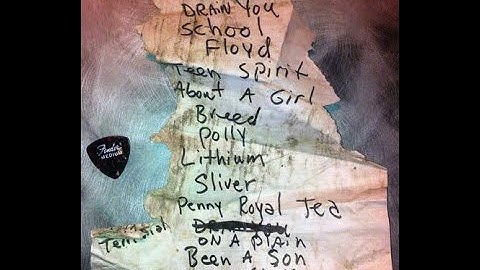 DRAIN YOU
School
Floyd
Teen Spirit
About A Girl
Breed
Polly
Lithium
Sliver
Penny Royal Tea
Drain You
ON A PLAIN
Been A Son
Territorial
Fender
MEDIUM